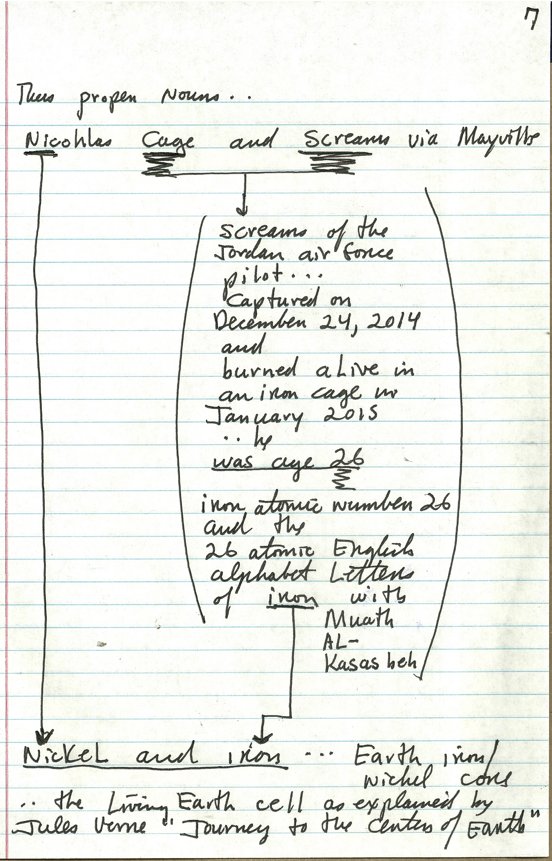 7
Thus proper Nouns..
Nicohlas Cage and Screams via Mayville
Screams of the
Jordan air force
pilot...
Captured on
December 24, 2014
and
burned alive in
an iron cage in
January 2015
.. he
was age 26
iron atomic number 26
and the
26 atomic English
alphabet Letters
of iron with
Muath
AL-
Kasasbeh
Nickel and iron ... Earth iron/
nickel core
.. the Living Earth cell as explained by
Jules Verne "Journey to the Center of Earth"